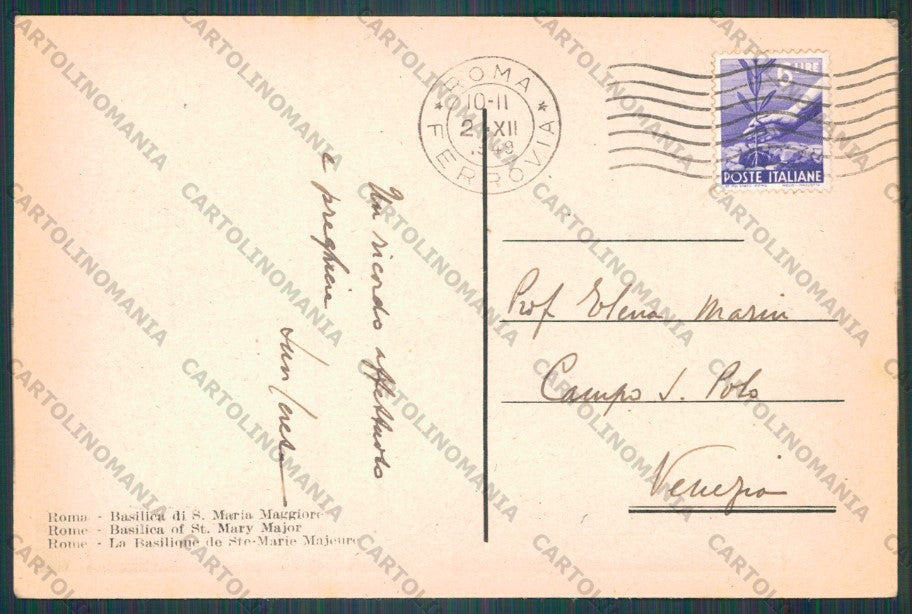 ROMA
FERROVIA
10-11
2 XII
1948
LIRE
POSTE ITALIANE
Un ricordo affettuoso
e preghiera
Prof Elena Marin
Campo S. Polo
Venezia
Roma - Basilica di S. Maria Maggiore
Rome - Basilica of St. Mary Major
Rome - La Basilique de Ste-Marie Majeure
CARTOLINOMANIA